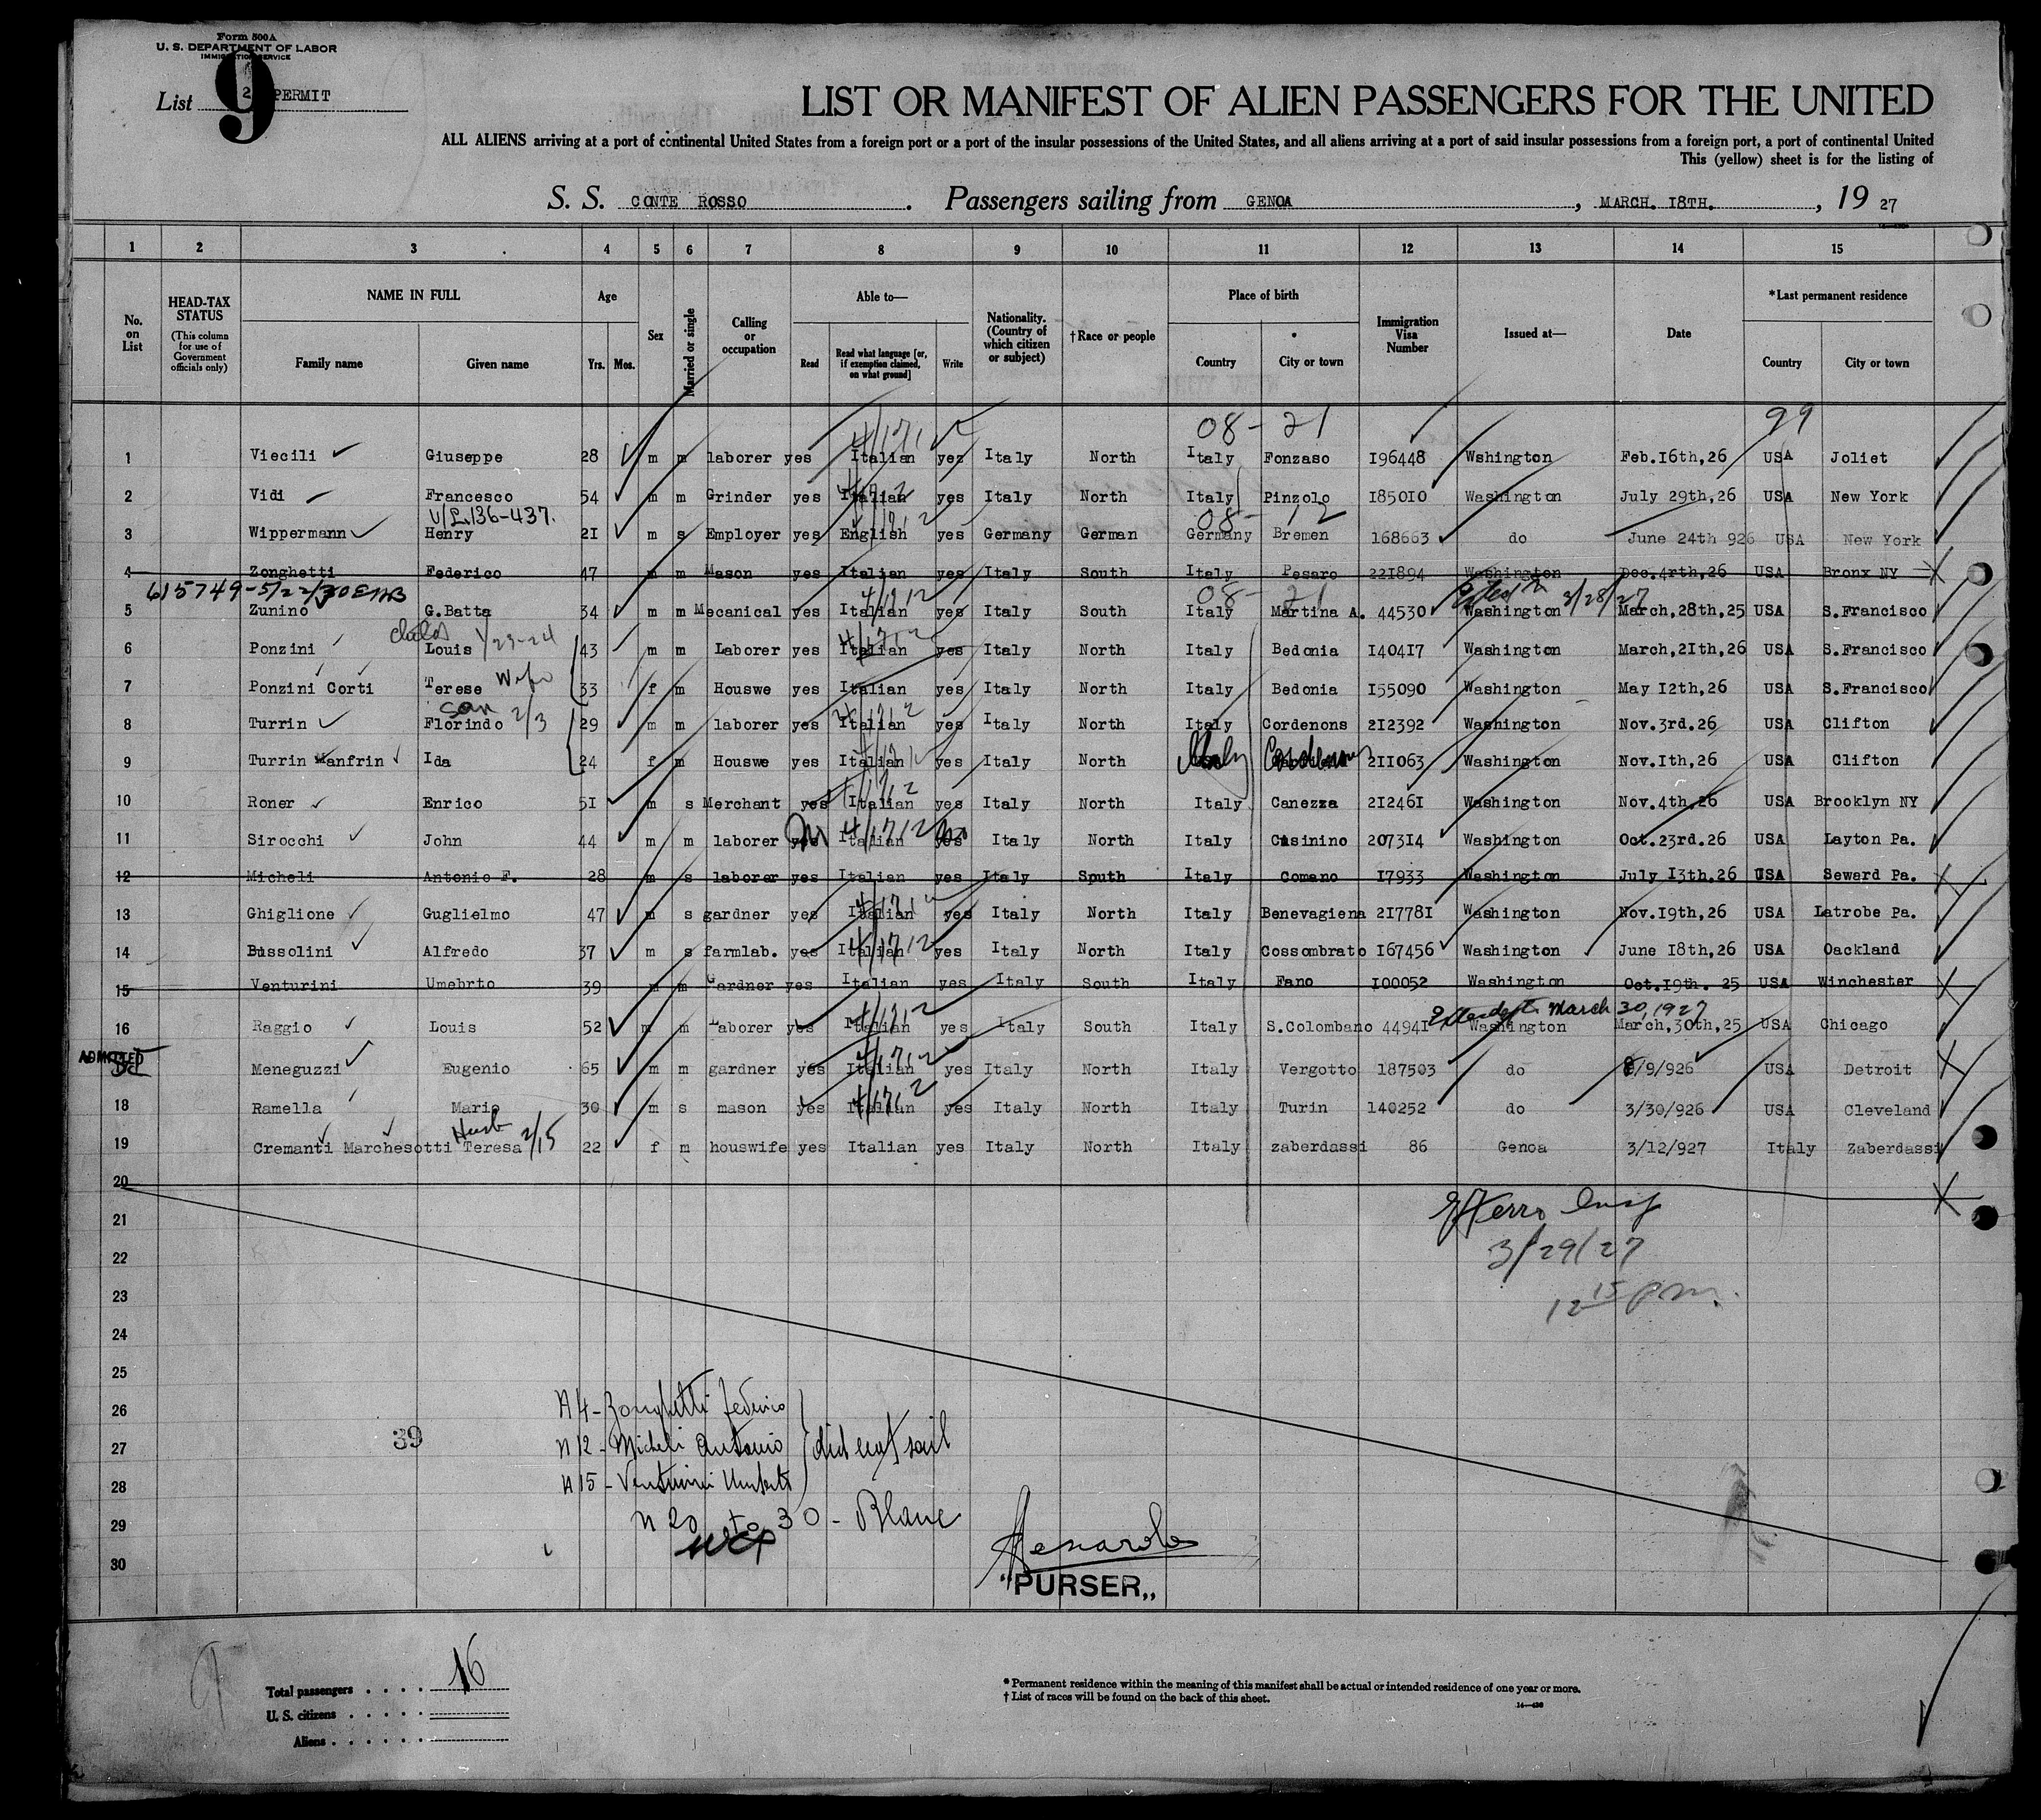 Form 500A
U. S. DEPARTMENT OF LABOR
IMMIGRATION SERVICE
List 2 PERMIT
9
LIST OR MANIFEST OF ALIEN PASSENGERS FOR THE UNITED
ALL ALIENS arriving at a port of continental United States from a foreign port or a port of the insular possessions of the United States, and all aliens arriving at a port of said insular possessions from a foreign port, a port of continental United
This (yellow) sheet is for the listing of
S. S. CONTE ROSSO. Passengers sailing from GENOA, MARCH. I8TH., 19 27
1 2 3 4 5 6 7 8 9 10 11 12 13 14 15
No. on List
HEAD-TAX STATUS
(This column for use of Government officials only)
NAME IN FULL
Family name Given name
Age
Yrs. Mos.
Sex
Married or single
Calling or occupation
Able to—
Read
Read what language [or, if exemption claimed, on what ground]
Write
Nationality. (Country of which citizen or subject)
†Race or people
Place of birth
Country City or town
Immigration Visa Number
Issued at—
Date
*Last permanent residence
Country City or town
08- 21 99
1 Viecili Giuseppe 28 m m laborer yes Italian yes Italy North Italy Fonzaso I96448 Wshington Feb.I6th,26 USA Joliet
2 Vidi Francesco 54 m m Grinder yes Italian yes Italy North Italy Pinzolo I850I0 Washington July 29th,26 USA New York
V/L.136-437.
08- 12
3 Wippermann Henry 2I m s Employer yes English yes Germany German Germany Bremen I68663 do June 24th 926 USA New York
4 Zonghetti Federico 47 m m Mason yes Italian yes Italy South Italy Pesaro 22I894 Washington Dec.4rth,26 USA Bronx NY
615749-5/22/30 EMB
08- 21 3/28/27
5 Zunino G.Batta 34 m m Mecanical yes Italian yes Italy South Italy Martina A. 44530 Washington March,28th,25 USA S.Francisco
1/23-24
6 Ponzini Louis 43 m m Laborer yes Italian yes Italy North Italy Bedonia I404I7 Washington March,2Ith,26 USA S.Francisco
Wife
7 Ponzini Corti Terese 33 f m Houswe yes Italian yes Italy North Italy Bedonia I55090 Washington May I2th,26 USA S.Francisco
son 2/3
8 Turrin Florindo 29 m m laborer yes Italian yes Italy North Italy Cordenons 2I2392 Washington Nov.3rd.26 USA Clifton
9 Turrin Manfrin Ida 24 f m Houswe yes Italian yes Italy North Italy Cordenons 2II063 Washington Nov.Ith,26 USA Clifton
10 Roner Enrico 5I m s Merchant yes Italian yes Italy North Italy Canezza 2I246I Washington Nov.4th.26 USA Brooklyn NY
11 Sirocchi John 44 m m laborer yes Italian yes Italy North Italy Cusinino 2073I4 Washington Oct.23rd.26 USA Layton Pa.
12 Micheli Antonio F. 28 m s laborer yes Italian yes Italy South Italy Comano I7933 Washington July I3th.26 USA Seward Pa.
13 Ghiglione Guglielmo 47 m s gardner yes Italian yes Italy North Italy Benevagiena 2I778I Washington Nov.I9th,26 USA Latrobe Pa.
14 Bussolini Alfredo 37 m s farmlab. yes Italian yes Italy North Italy Cossombrato I67456 Washington June I8th,26 USA Oackland
15 Venturini Umebrto 39 m m Gardner yes Italian yes Italy South Italy Fano I00052 Washington Oct.I9th. 25 USA Winchester
March 30, 1927
16 Raggio Louis 52 m m Laborer yes Italian yes Italy South Italy S.Colombano 4494I Washington March,30th,25 USA Chicago
ADMITTED
Meneguzzi Eugenio 65 m m gardner yes Italian yes Italy North Italy Vergotto I87503 do 9/926 USA Detroit
18 Ramella Mario 30 m s mason yes Italian yes Italy North Italy Turin I40252 do 3/30/926 USA Cleveland
Husb 2/15
19 Cremanti Marchesotti Teresa 22 f m houswife yes Italian yes Italy North Italy zaberdassi 86 Genoa 3/12/927 Italy Zaberdassi
20
21
22
23
24
25
26
27
28
29
30
3/29/27
12 15 pm.
39
N 4 - Zonghetti Federico
N 12 - Micheli Antonio
N 15 - Venturini Umberto
did not sail
N 20 to 30 - Blanc
"PURSER„
Total passengers . . . . 16
U. S. citizens
Aliens
* Permanent residence within the meaning of this manifest shall be actual or intended residence of one year or more.
† List of races will be found on the back of this sheet.